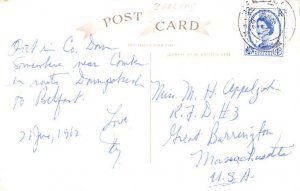 POST CARD
Out in Co. Down
Somewhere near Comber
en route Downpatrick
to Belfast.
Love
21 June, 1962
Miss M. H. Appleyah
R.F.D. #3
Great Barrington
Massachusetts
U.S.A.